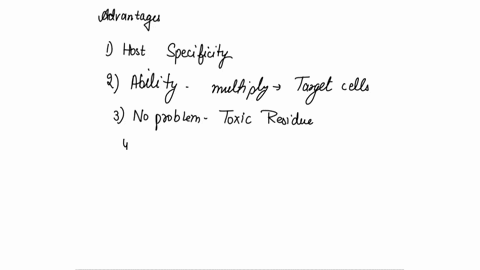 Advantages
1) Host Specificity
2) Ability. multiply → Target cells
3) No problem - Toxic Residue
4